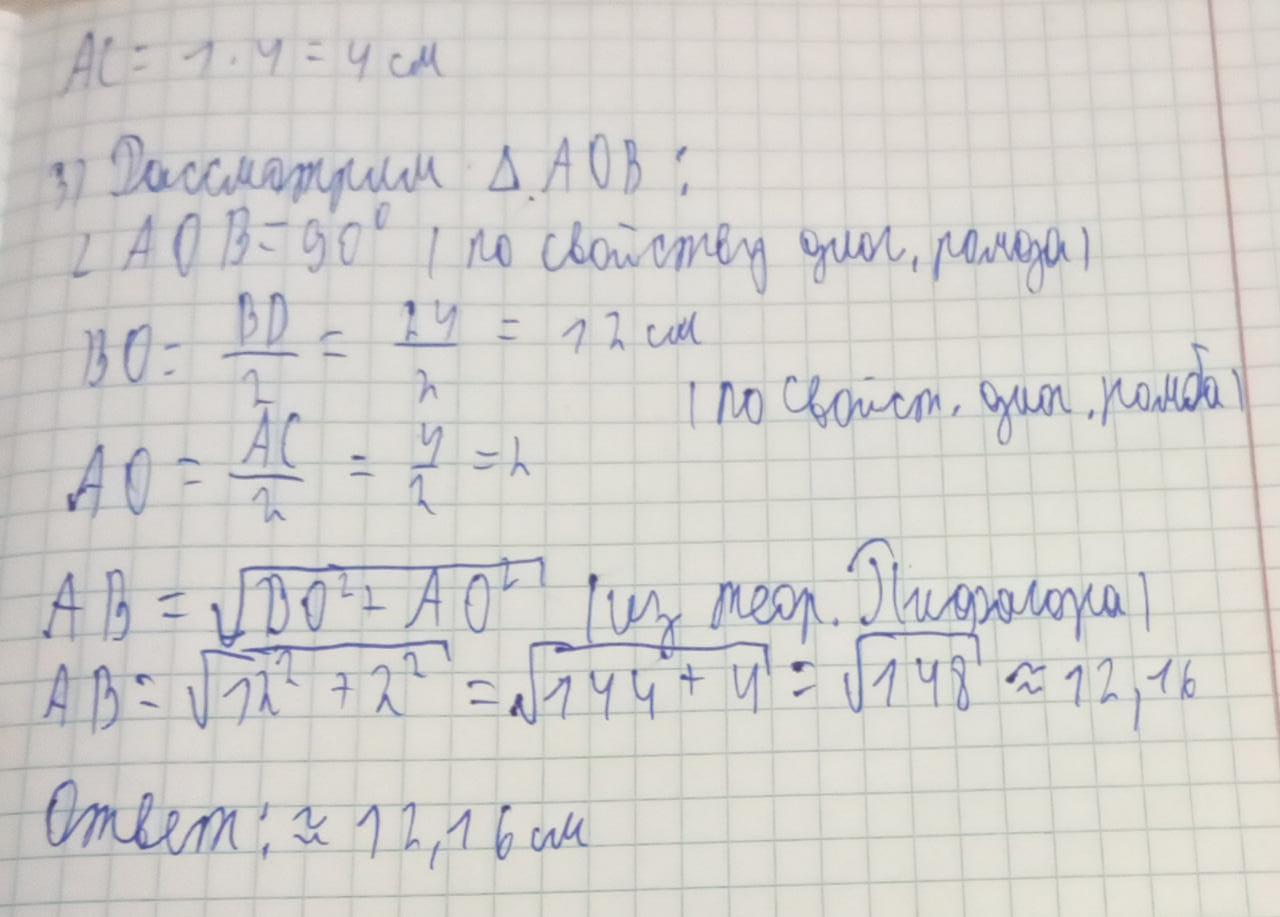 AC = 1 · 4 = 4 см
3) Рассмотрим Δ AOB :
∠ AOB = 90° (по свойству диаг. ромба)
BO = BD/2 = 24/2 = 12 см
(по свойст. диаг. ромба)
AO = AC/2 = 4/2 = 2
AB = √(BO² + AO²) (из теор. Пифагора)
AB = √(12² + 2²) = √(144 + 4) = √148 ≈ 12,16
Ответ: ≈ 12,16 см